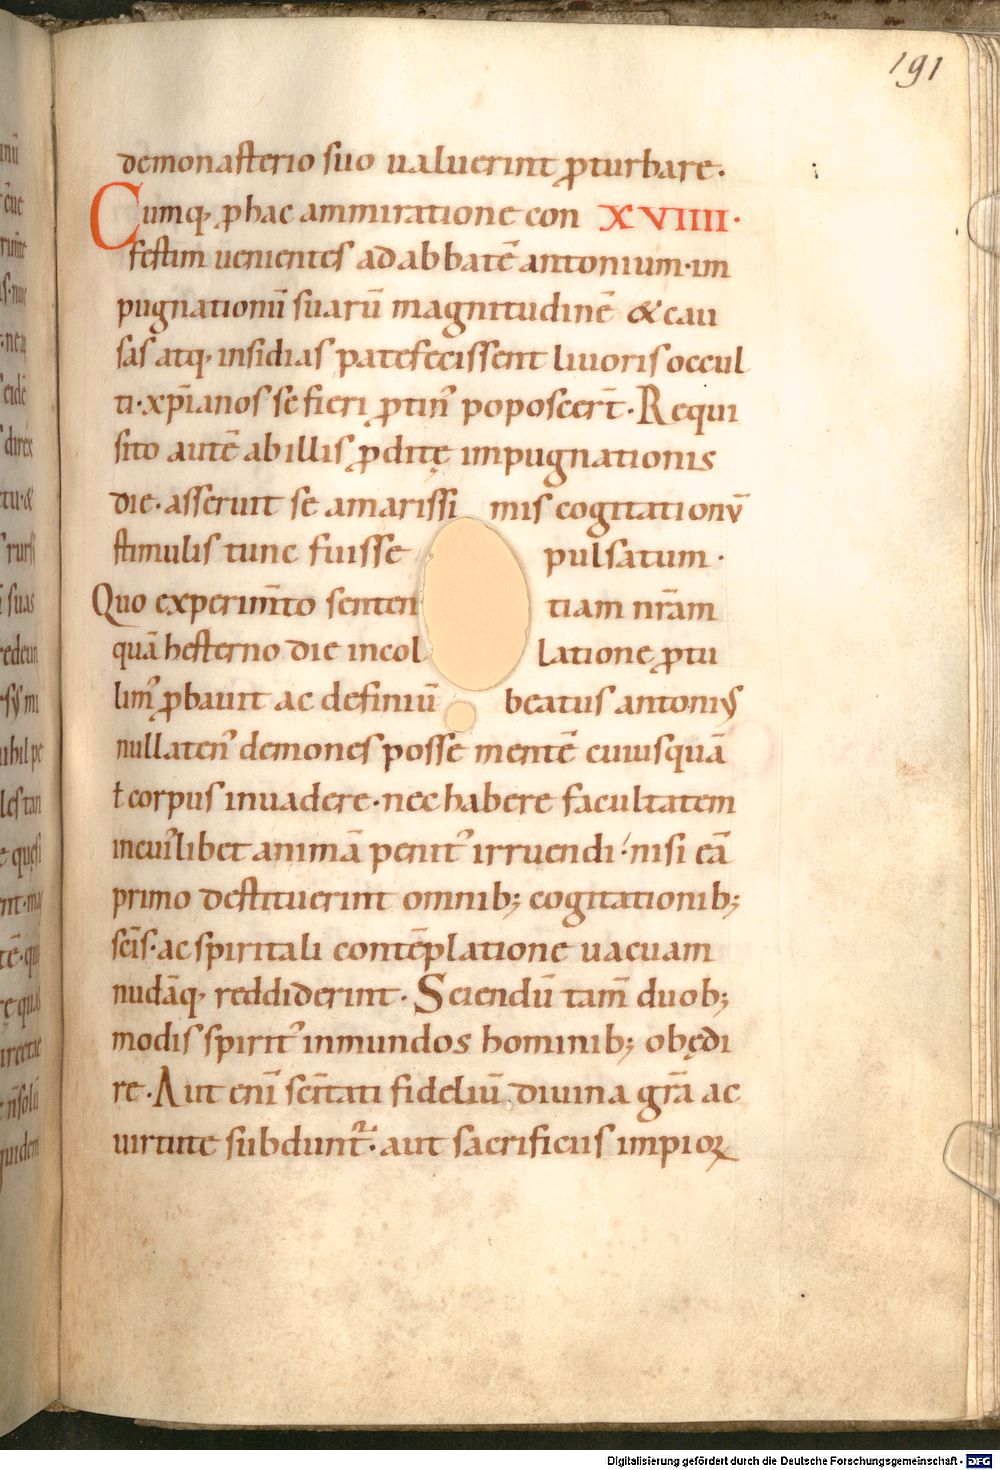 191
demonasterio suo ualuerint ꝑturbare.
Cumq; ꝓ hac ammiratione con XVIIII.
festim uenientes ad abbatē antonium. im
pugnationū suarū magnitudinē & cau
sas atq; insidias patefecissent liuoris occul
ti. xp̄ianos se fieri ꝓtin᾽ poposcer̄t. Requi
sito autē ab illis ꝓditę impugnationis
die. asseruit se amarissi mis cogitationū
stimulis tunc fuisse pulsatum.
Quo experim̄to senten tiam nr̄am
quā hesterno die incol latione ꝓtu
lim᾽ ꝓbauit ac definiū beatus antoni᾽
nullaten᾽ demones posse mentē cuiusquā
ł corpus inuadere. nec habere facultatem
in cui᾽libet animā penit᾽ irruendi. nisi eā
primo destituerint omnib; cogitationib;
sc̄is. ac spiritali contēplatione uacuam
nudāq; reddiderint. Sciendū tam̄ duob;
modis spirit᾽ inmundos hominib; obędi
re. Aut enī sc̄itati fideliū diuina gr̄a ac
uirtute subdunt᾽. aut sacrificiis impioꝝ
Digitalisierung gefördert durch die Deutsche Forschungsgemeinschaft - DFG